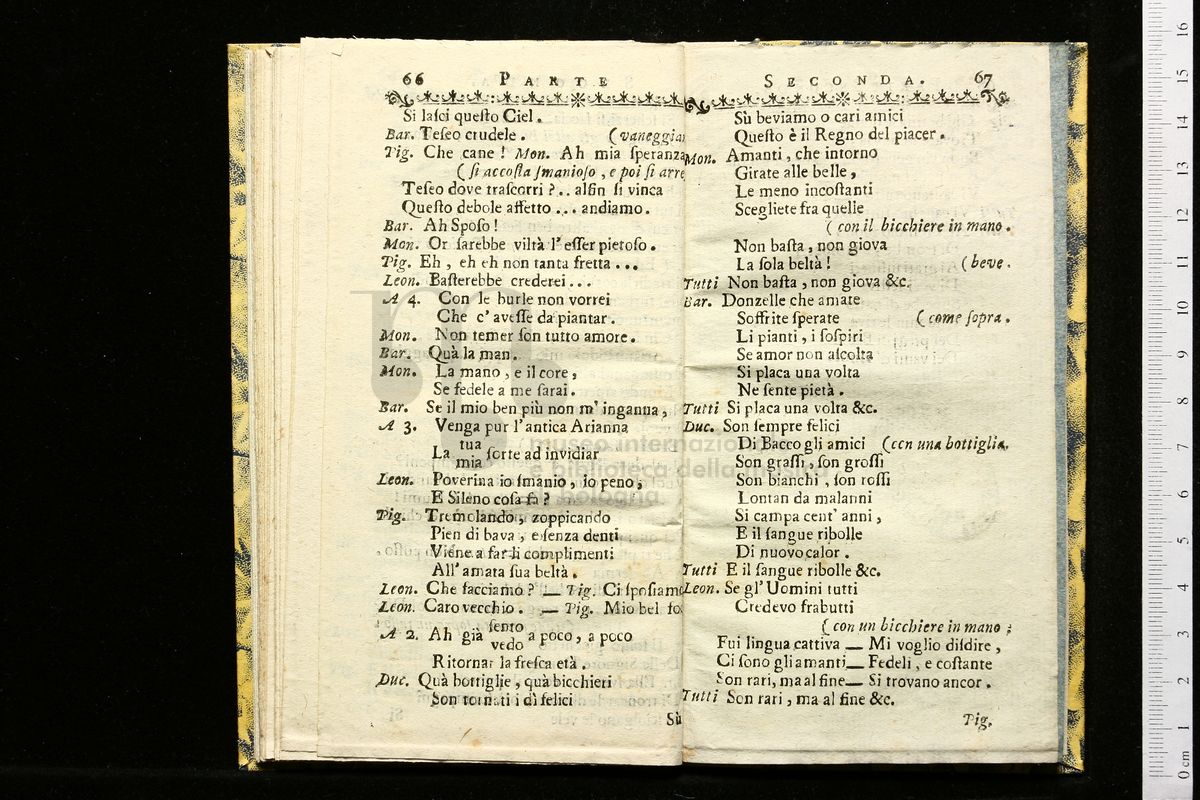 66 PARTE
Si lasci questo Ciel.
Bar. Teseo crudele. (vaneggian
Pig. Che cane! Mon. Ah mia speranza
(si accosta smanioso, e poi si arre
Teseo dove trascorri?.. alfin si vinca
Questo debole affetto... andiamo.
Bar. Ah Sposo!
Mon. Or sarebbe viltà l'esser pietoso.
Pig. Eh, eh eh non tanta fretta...
Leon. Basterebbe crederei...
A 4. Con le burle non vorrei
Che c'avesse da piantar.
Mon. Non temer son tutto amore.
Bar. Quà la man.
Mon. La mano, e il core,
Se fedele a me sarai.
Bar. Se il mio ben più non m'inganna,
A 3. Venga pur l'antica Arianna
La tua mia sorte ad invidiar
Leon. Poverina io smanio, io peno,
E Sileno cosa fa?
Pig. Tremolando, zoppicando
Pien di bava, e senza denti
Viene a farli complimenti
All'amata sua beltà.
Leon. Che facciamo? — Pig. Ci sposiamo
Leon. Caro vecchio. — Pig. Mio bel
A 2. Ah già sento vedo a poco, a poco
Ritornar la fresca età.
Duc. Quà bottiglie, quà bicchieri
Son tornati i dì felici
Sù
SECONDA. 67
Sù beviamo o cari amici
Questo è il Regno del piacer.
Mon. Amanti, che intorno
Girate alle belle,
Le meno incostanti
Scegliete fra quelle
(con il bicchiere in mano.
Non basta, non giova
La sola beltà! (beve.
Tutti Non basta, non giova &c.
Bar. Donzelle che amate
Soffrite sperate (come sopra.
Li pianti, i sospiri
Se amor non ascolta
Si placa una volta
Ne sente pietà.
Tutti Si placa una volta &c.
Duc. Son sempre felici
Di Bacco gli amici (con una bottiglia.
Son grassi, son grossi
Son bianchi, son rossi
Lontan da malanni
Si campa cent'anni,
E il sangue ribolle
Di nuovo calor.
Tutti E il sangue ribolle &c.
Leon. Se gl'Uomini tutti
Credevo frabutti
(con un bicchiere in mano;
Fui lingua cattiva — Mi voglio disdire,
Ci sono gli amanti — Fedeli, e costante
Son rari, ma al fine — Si trovano ancor.
Tutti Son rari, ma al fine &c.
Pig.
museo internazionale
e biblioteca della musica
di bologna
0 cm 1 2 3 4 5 6 7 8 9 10 11 12 13 14 15 16